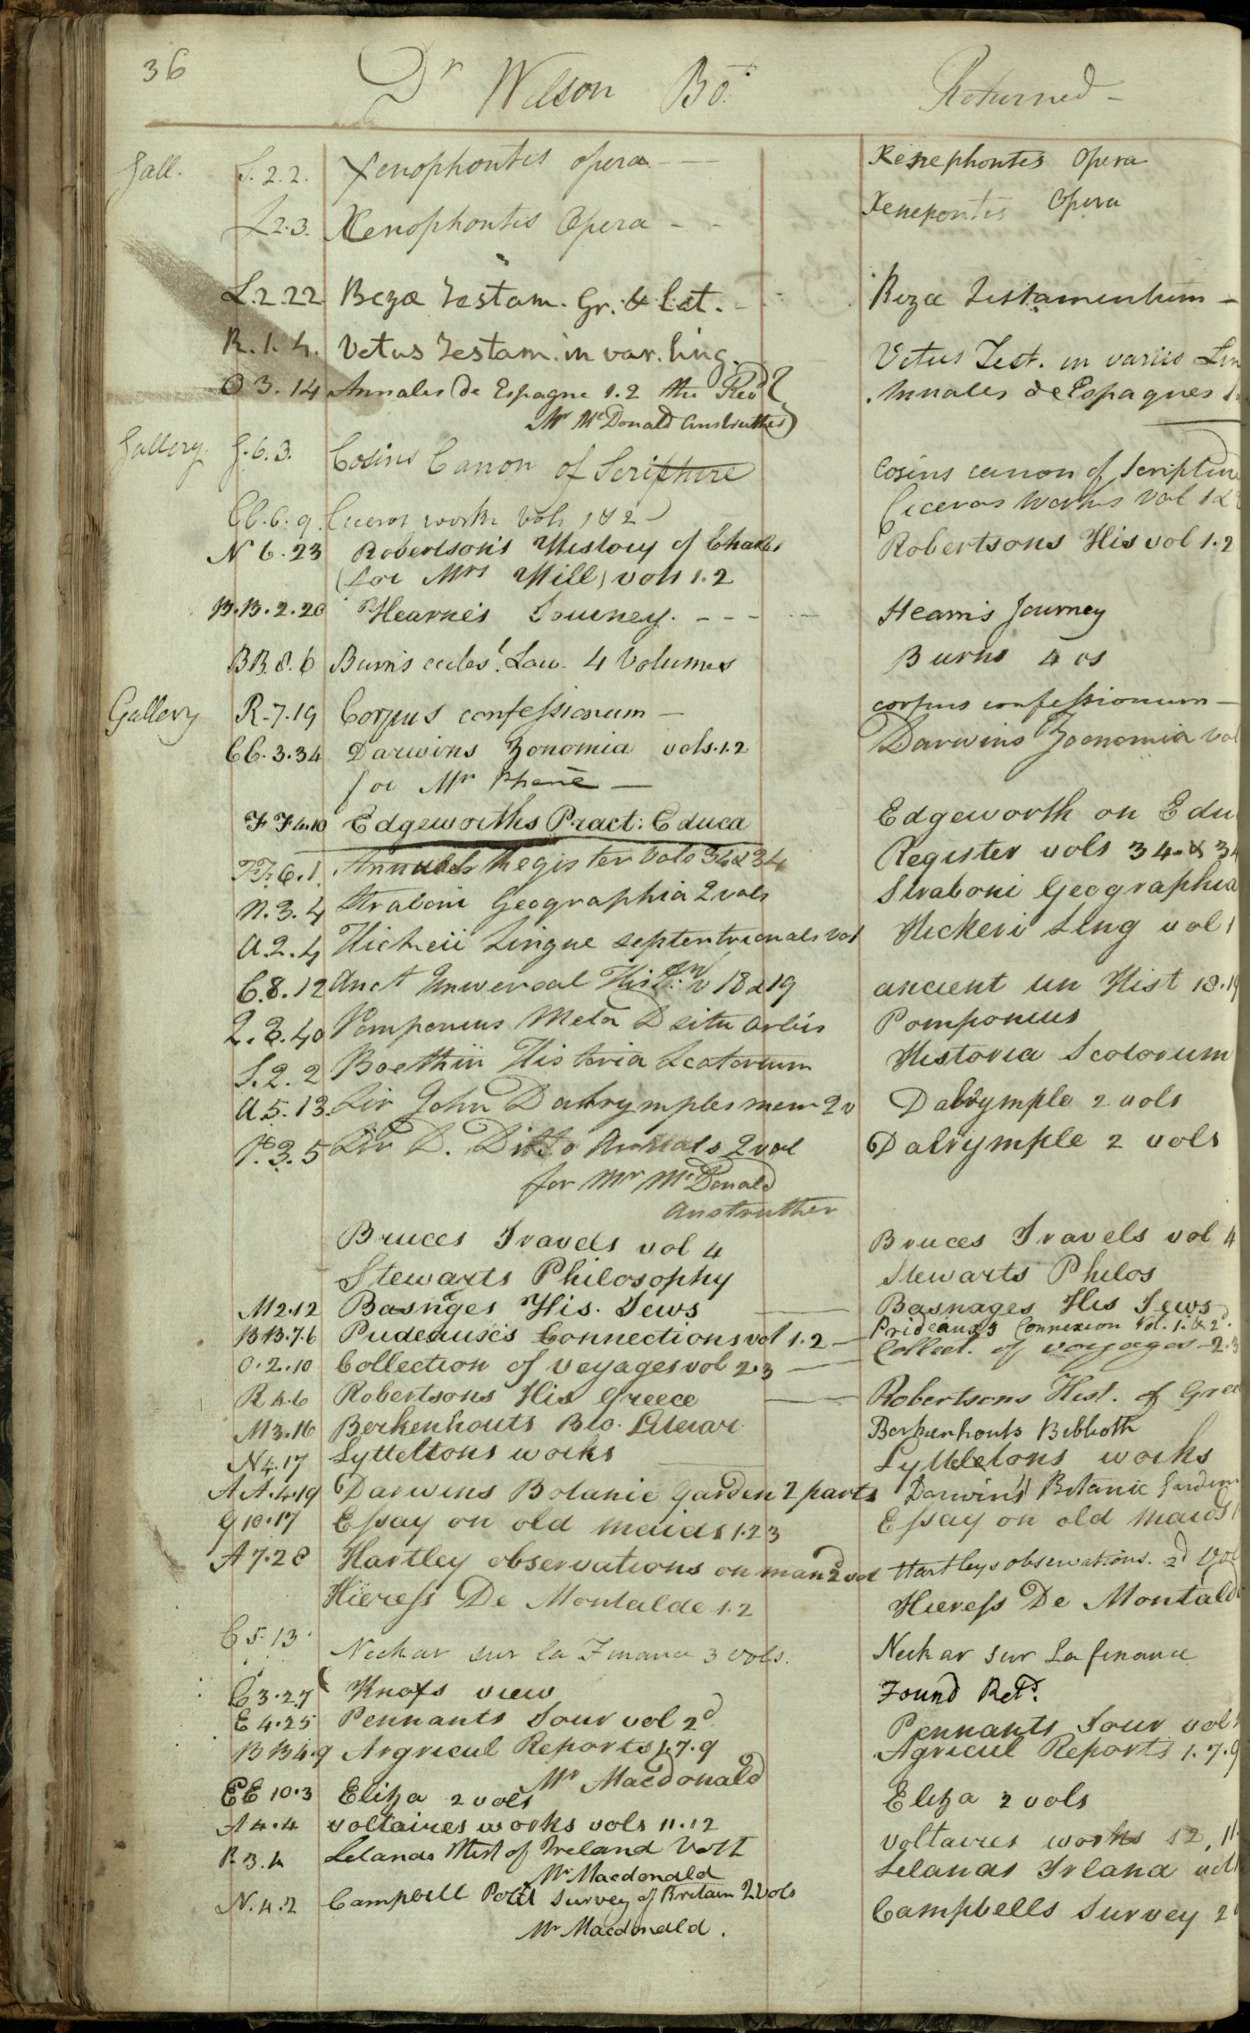 36 Dr Wilson Bo. Returned -
Gall. S. 2. 2. Xenophontis opera - - Xenephontis Opera
L 2. 3. Xenophontis Opera - - Xenepontis Opera
L. 2. 22 Bezæ Testam. Gr. & Lat. - Bezæ Testamentum -
R. 1. 4. Vetus Testam. in var. ling. Vetus Test. in variis Lin
O 3. 14 Annales de Espagne 1. 2 the Revd Annales de Espagnes
Mr McDonald Anstruther
Gallery G. 6. 3. Cosins Canon of Scripture Cosins canon of Scriptur
CC. 6. 9. Ciceros works Vols 1 & 2 Ciceros works Vol 1 &
N 6. 23 Robertson's History of Charles Robertsons His vol 1. 2
(for Mrs Hill) vols 1. 2
B.B. 2. 20 Hearne's Journey. - - - Hearn's Journey
BB 8. 6 Burn's eccles! Law 4 Volumes Burns 4 os
Gallery R. 7. 19 Corpus confessionum - corpus confessionum -
CC. 3. 34 Darwins Zonomia vols. 1. 2 Darwins Zoonomia vol
for Mr Phene -
FF 4. 10 Edgeworths Pract: Educa Edgeworth on Edu
FF. 6. 1. Annuals Register Vols 34 & 34 Register vols 34 & 34
N. 3. 4 Straboni Geographia 2 vols Straboni Geographia
A. 2. 4 Hickeii Lingue septentrionals vol Hickeri Ling vol 1
C. 8. 12 Anct Universal Hist. v 18 & 19 ancient un Hist 18. 19
2. 3. 40 Pomponius Mela D situ orbis Pomponius
S. 2. 2 Boethii Historia Scotorum Historia Scotorum
A. 5. 13. Sir John Dalrymples mem 2 v Dalrymple 2 vols
P. 3. 5 Sir D. Ditto Annals 2 vol Dalrymple 2 vols
for Mr McDonald
Anstruther
Bruces Travels vol 4 Bruces Travels vol 4
Stewarts Philosophy Stewarts Philos
M 2. 12 Basnges His. Jews Basnages His Jews
BB. 7. 6 Pudeauxs Connections vol 1. 2 - Prideauxs Connexion Vol. 1. & 2.
O. 2. 10 Collection of voyages vol 2. 3 - Collect. of voyages - 2. 3
R 4. 6 Robertsons His Greece - Robertsons Hist. of Gree
M 3. 16 Berkenhouts Bio. Literar Berkenhouts Biblioth
N 4. 17 Lytteltons works Lytteletons works
AA. 4. 19 Darwins Botanic Garden 2 parts Darwin's Botanic Garden
G 10. 17 Essay on old maids 1. 2 3 Essay on old maids 1
A 7. 28 Hartley observations on man 2d vol Hartleys observations. 2d Vol
Hieress De Montalde 1. 2 Hieress De Montald
C 5. 13. Neckar sur la Finance 3 vols. Neckar sur La finance
E 3. 27 Knoxs view Found Retd.
E 4. 25 Pennants Tour vol 2d Pennants Tour vol
BB 4. 9 Argricul Reports 1. 7. 9 Agricul Reports 1. 7. 9
Mr Macdonald
EE 10. 3 Eliza 2 vols Eliza 2 vols
A 4. 4 voltaires works vols 11. 12 voltaires works 12, 11
R. 3. 4 Lelands Hist of Ireland Vol 1 Lelands Irland vol
Mr Macdonald
N. 4. 2 Campbell Polit Survey of Britain 2 Vols Campbells Survey 2
Mr Macdonald.